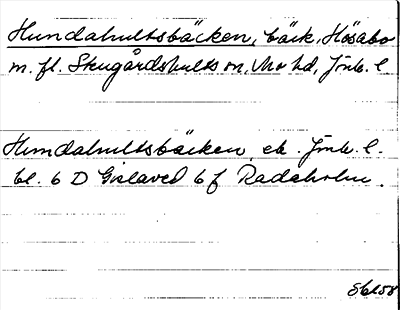 Hundahultsbäcken, bäck, Hösabo
m.fl. Skugårdshults m, Mo hd, Jönk. l
Hundahultsbäcken, ek. Jönk. l.
bl. 6 D Gislaved 6 f Radaholm.